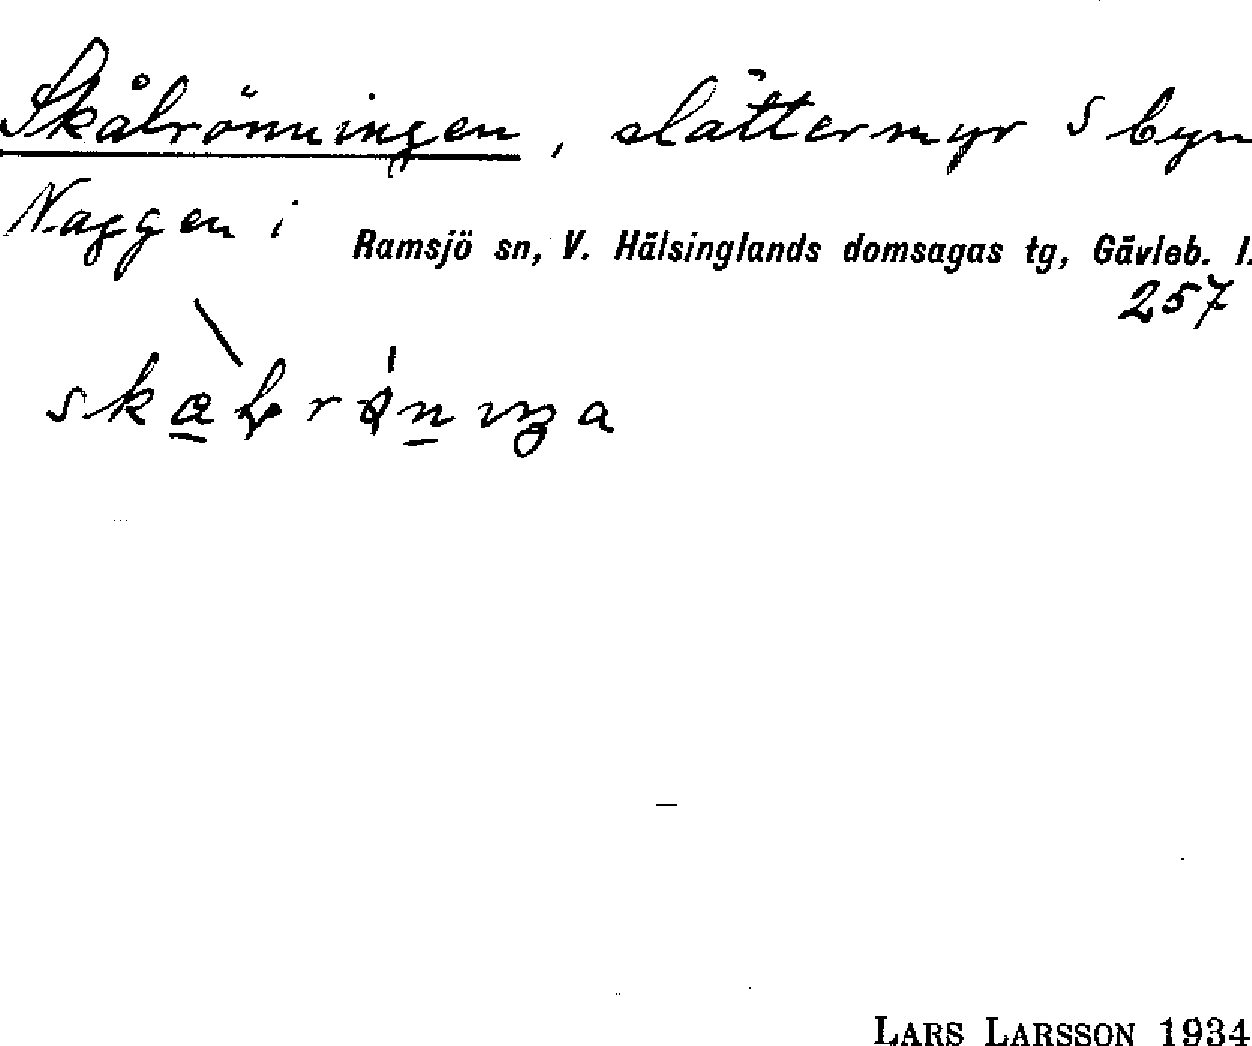 Skålrönningen, slåttermyr S byn
Naggen i Ramsjö sn, V. Hälsinglands domsagas tg, Gävleb. l.
257
LARS LARSSON 1934